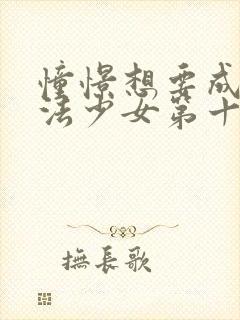 憧憬想要成
法少女第十
撫長歌